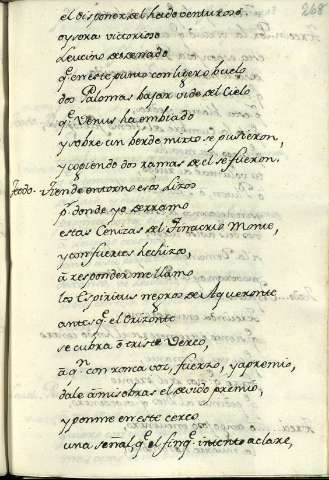 268
el disponer del hado venturoso
oy sera victorioso
Leucino desdeñado
q̃ en este punto con ligero buelo
dos Palomas bajar vide del Cielo
q̃ Venus ha embiado
y sobre un verde mirto se pusieron,
y cogiendo dos ramas de el se fueron.
tiende entorno esos lizos
pr donde yo derramo
estas Cenizas del Tinacrio Monte,
y con fuertes hechizos,
a responderme llamo
los Espiritus negros de Aqueronte
antes q̃ el Orizonte
se cubra o triste Verco,
a qn con ronca voz, fuerzo, y apremio,
dale a mis obras el devido premio,
y ponme en este cerco
una señal q̃ el fin q̃ intento aclare,